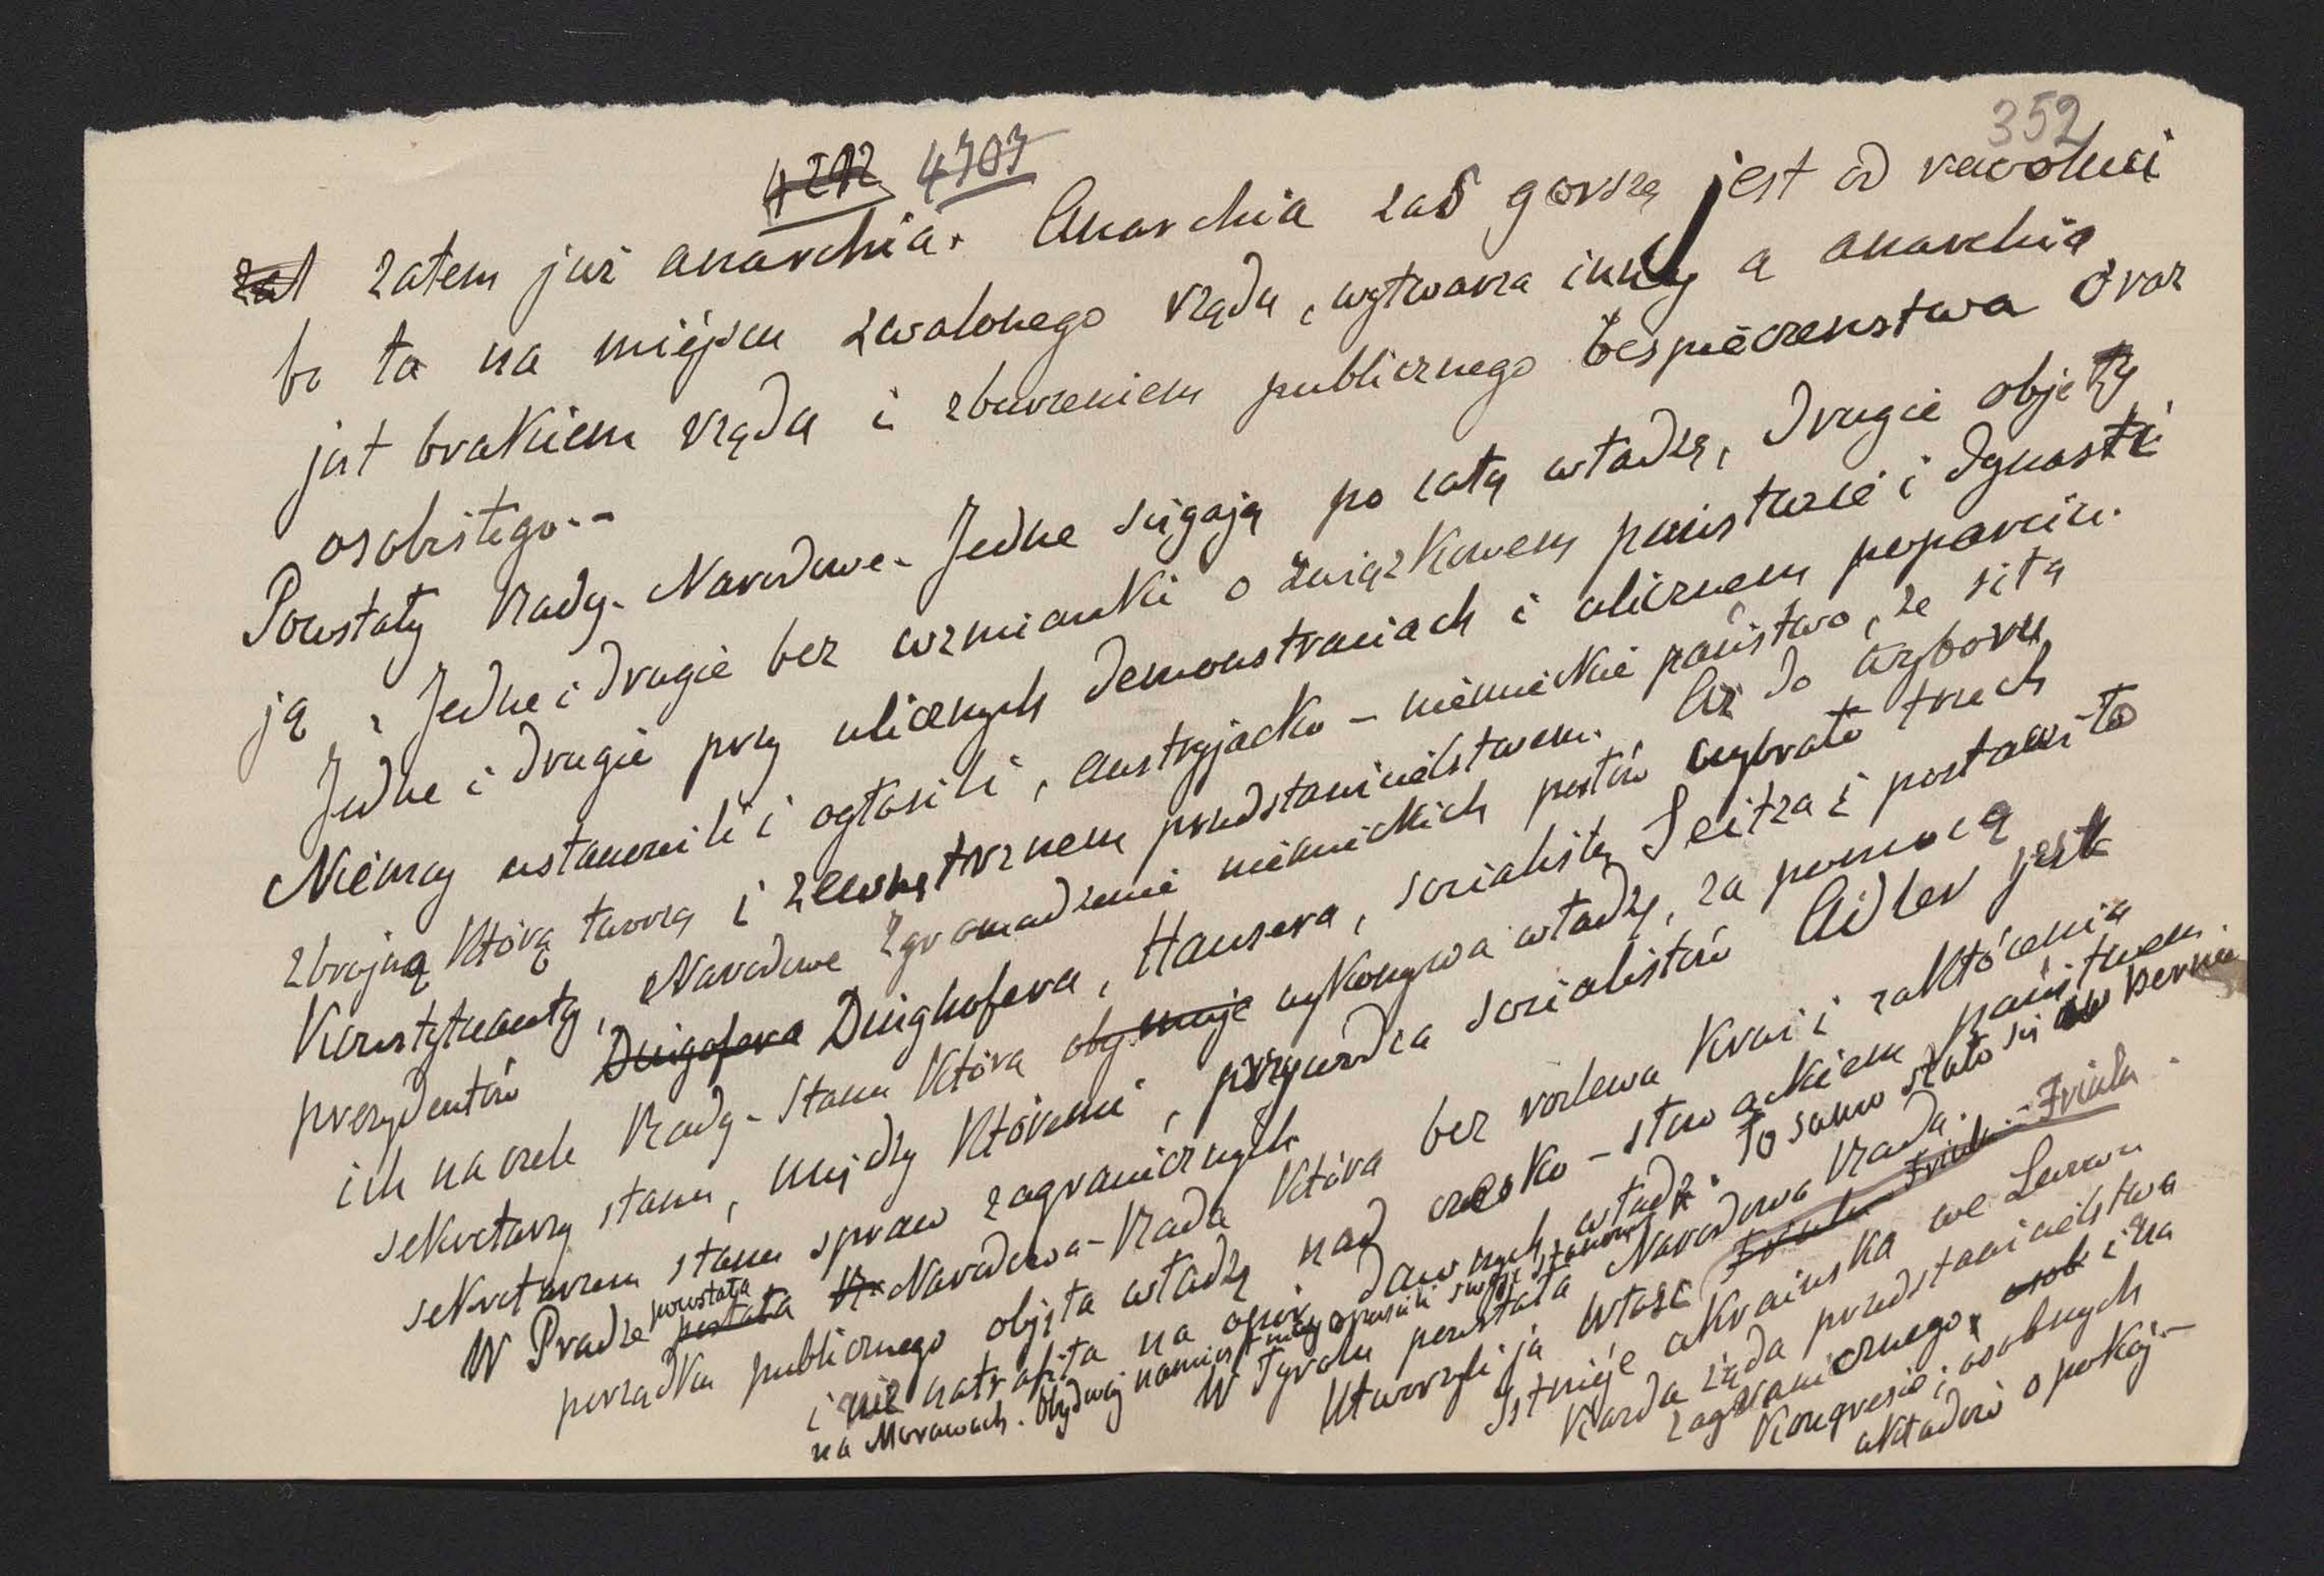 352
4292 4707
zat zatem już anarchia. Anarchia zaś gorszą jest od rewoluci
bo ta na miejscu zwalonego rządu, wytwarza inny a anarchia
jest brakiem rządu i zburzeniem publicznego bespieczenstwa oraz
osobistego.-
Powstały Rady-Narodowe- Jedne sięgają po całą władzę, drugie obję ty
ją, Jedne i drugie bez wzmianki o związkowem państwie i dynasti
Jedne i drugie przy ulicznych demonstraciach i ulicznem poparciu.
Niemcy ustanowili i ogłosili, austryjacko-niemieckie państwo, ze siłą
zbrojną którą tworzą i zewnętrznem przedstawicielstwem. Aż do wyboru
Konstytuanty, Narodowe Zgromadzenie niemieckich posłów wybrało trzech
prezydentów Dingofera Dinghofera, Hausera, socialistę Seitza i postawiło
ich na czele Rady-Stanu która obejmuje wykonywa władzę, za pomocą
sekretarzy stanu, między któremi, przywódca socialistów Adler jest
sekretarzem stanu spraw zagranicznych
W Pradze powstała postała R- Narodowa-Rada która bez rozlewu krwi i zakłócenia
porządku publicznego objęła władzę nad czesko-słowackiem państwem
i nie natrafiła na opór dawnych władz. To samo stało się w Bernie
na Morawach. Obydwaj namiestnicy opuścili swoje stanow
W Tyrolu powstała Narodowa Rada.
Utworzyli ją Włosi
Istnieje ukraińska we Lwowie
Każda żąda przedstawicielstwa
zagranicznego, osob i na
Kongresie i osobnych
układów o pokój.-